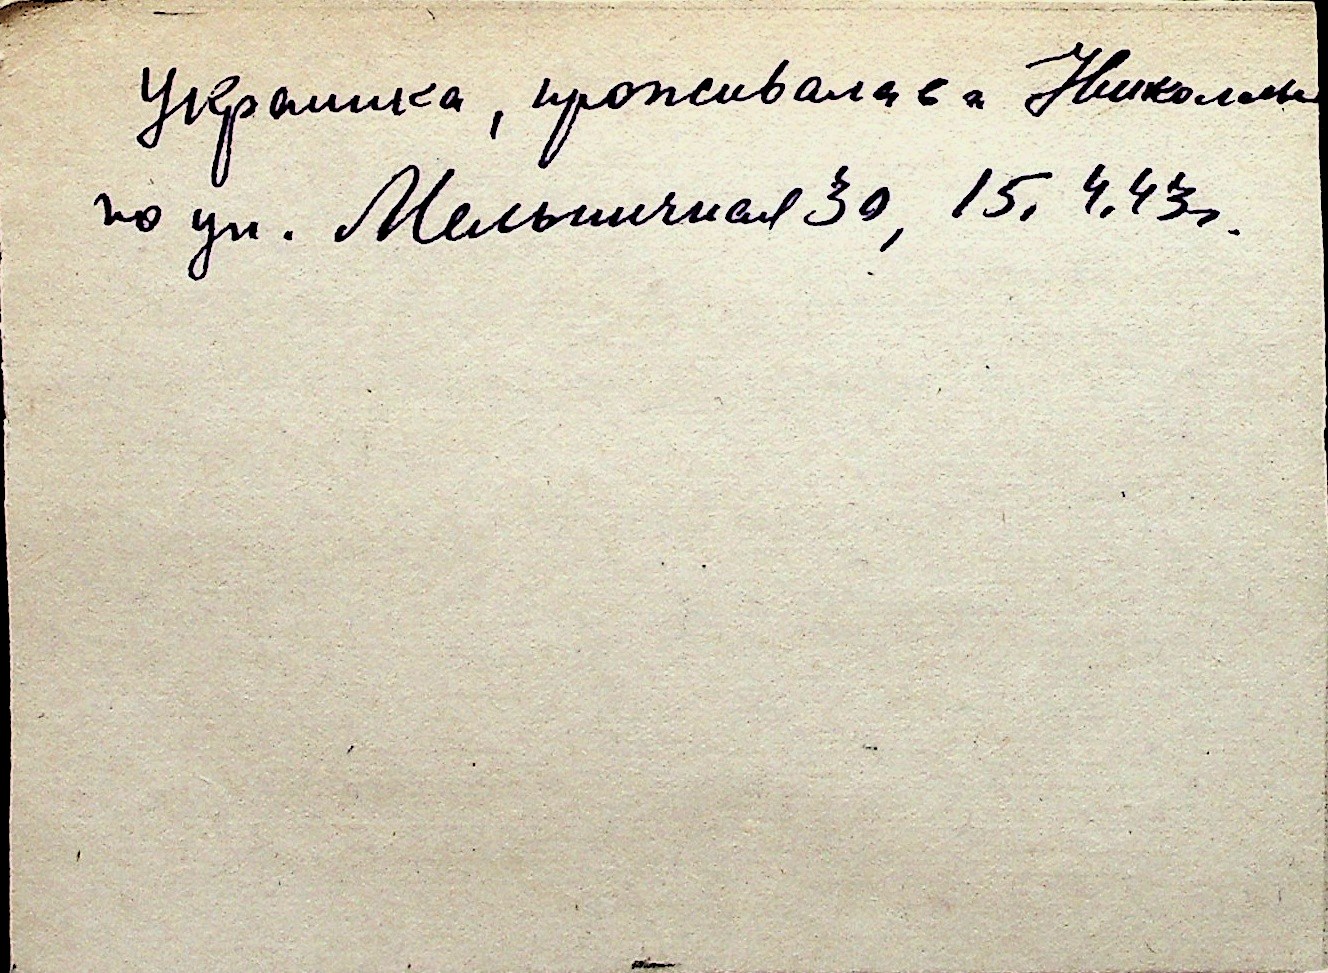 Украинка, проживала в г. Николаеве
по ул. Мельничная 30, 15.4.43г.